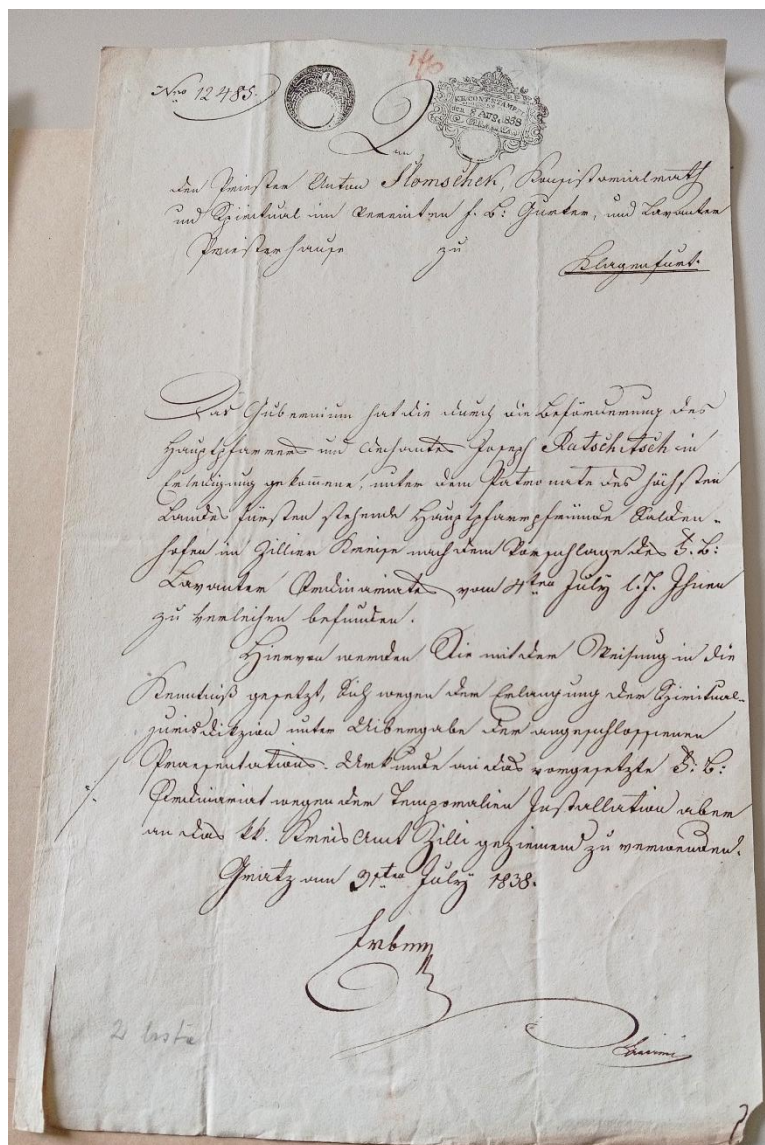 Nro 12485.
An
den Priester Anton Slomschek, Konsistorialrath
und Spiritual im vereinten f. B: Gurker, und Lavanter
Priesterhause zu
Klagenfurt.
Das Gubernium hat die durch die Beförderung des
Hauptpfarrers und Dechantes Joseph Ratschitsch in
Erledigung gekommene, unter dem Patronate des höchsten
Landesfürsten stehende Hauptpfarrpfründe Salden-
hofen im Zillier Kreise nach dem Vorschlage des F. B:
Lavanter Ordinariats vom 4ten July l. J. Ihnen
zu verleihen befunden.
Hievon werden Sie mit der Weisung in die
Kenntniß gesetzt, Sich wegen der Erlangung der Spiritual-
jurisdikzion unter Uibergabe der angeschlossenen
Praesentations-Urkunde an das vorgesetzte F: B:
Ordinariat wegen der Temporalien Installation aber
an das kk. Kreisamt Zilli geziemend zu verwenden.
Gratz am 31ten July 1838.